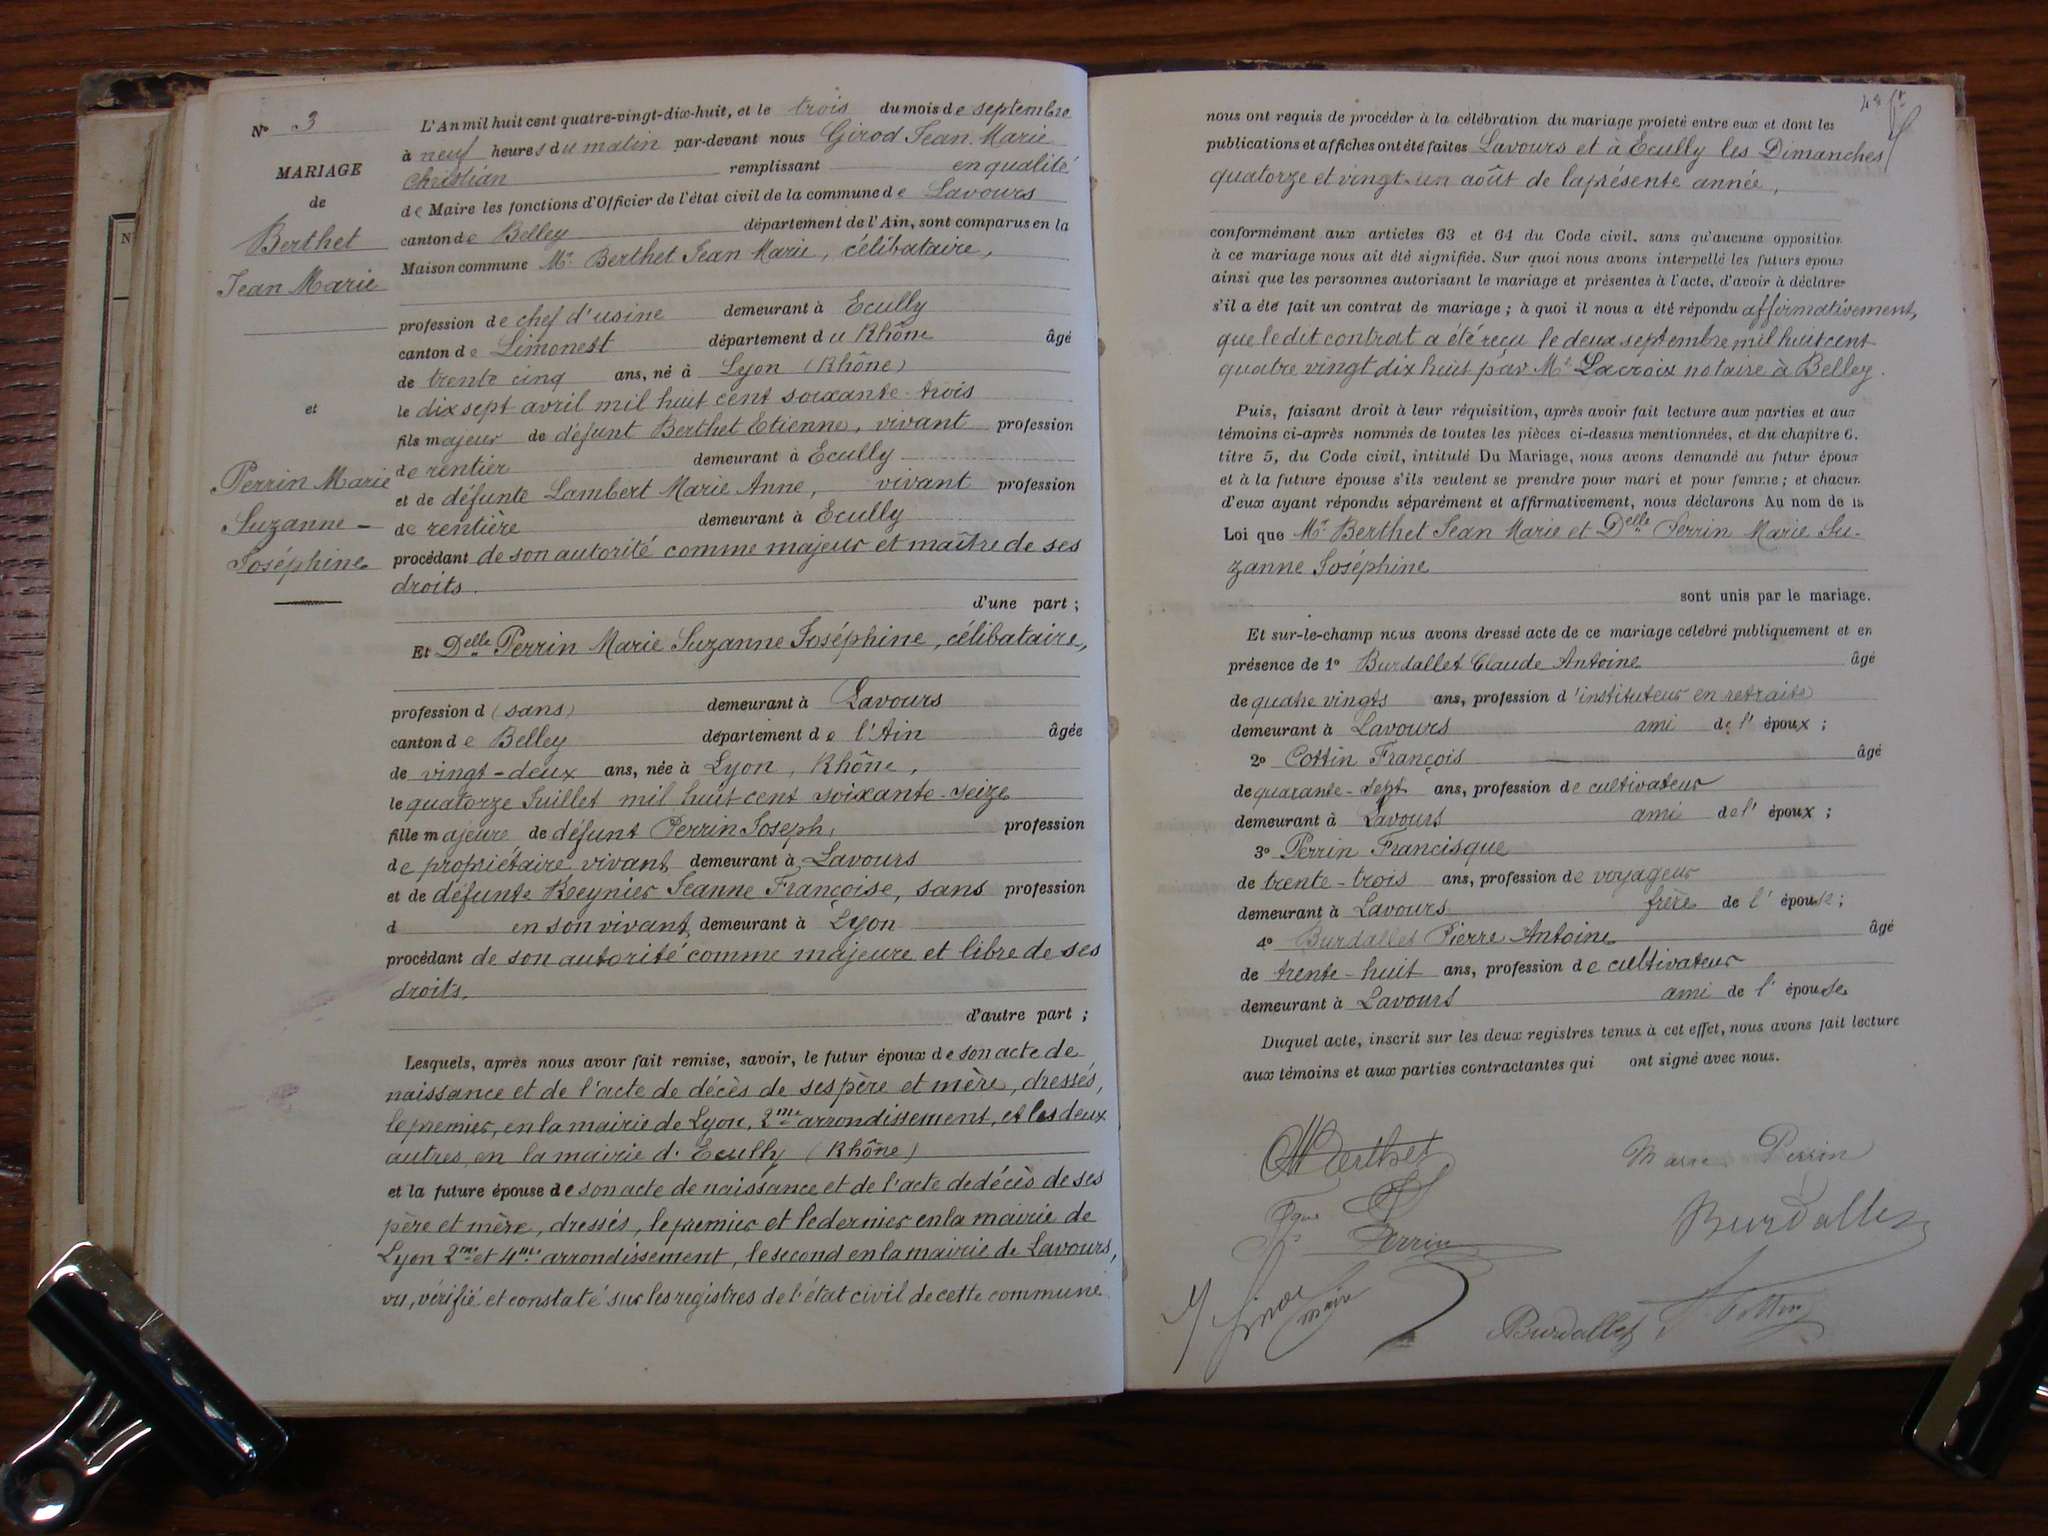 N° 3
MARIAGE
de
Berthet
Jean Marie
et
Perrin Marie
Suzanne
Joséphine
L'An mil huit cent quatre-vingt-dix-huit, et le trois du mois de septembre
à neuf heures du matin par-devant nous Girod Jean Marie
Christian remplissant en qualité
de Maire les fonctions d'Officier de l'état civil de la commune de Lavours
canton de Belley département de l'Ain, sont comparus en la
Maison commune Mr Berthet Jean Marie, célibataire,
profession de chef d'usine demeurant à Ecully
canton de Limonest département du Rhône âgé
de trente cinq ans, né à Lyon (Rhône)
le dix sept avril mil huit cent soixante-trois
fils majeur de défunt Berthet Etienne, vivant profession
de rentier demeurant à Ecully
et de défunte Lambert Marie Anne, vivant profession
de rentière demeurant à Ecully
procédant de son autorité comme majeur et maître de ses
droits.
d'une part ;
Et Delle Perrin Marie Suzanne Joséphine, célibataire,
profession d (sans) demeurant à Lavours
canton de Belley département de l'Ain âgée
de vingt-deux ans, née à Lyon, Rhône,
le quatorze Juillet mil huit cent soixante-seize
fille majeure de défunt Perrin Joseph, profession
de propriétaire vivant demeurant à Lavours
et de défunte Reynier Jeanne Françoise, sans profession
d en son vivant demeurant à Lyon
procédant de son autorité comme majeure et libre de ses
droits.
d'autre part ;
Lesquels, après nous avoir fait remise, savoir, le futur époux de son acte de
naissance et de l'acte de décès de ses père et mère, dressés,
le premier, en la mairie de Lyon, 2me arrondissement, et les deux
autres en la mairie d. Ecully (Rhône)
et la future épouse de son acte de naissance et de l'acte de décès de ses
père et mère, dressés, le premier et le dernier en la mairie de
Lyon 2me et 4me arrondissement, le second en la mairie de Lavours,
vu, vérifié et constaté sur les registres de l'état civil de cette commune
nous ont requis de procéder à la célébration du mariage projeté entre eux et dont les
publications et affiches ont été faites Lavours et à Ecully les Dimanches
quatorze et vingt-un août de la présente année,
conformément aux articles 63 et 64 du Code civil, sans qu'aucune opposition
à ce mariage nous ait été signifiée. Sur quoi nous avons interpellé les futurs époux
ainsi que les personnes autorisant le mariage et présentes à l'acte, d'avoir à déclarer
s'il a été fait un contrat de mariage ; à quoi il nous a été répondu affirmativement,
que le dit contrat a été reçu le deux septembre mil huit cent
quatre vingt dix huit par Me Lacroix notaire à Belley.
Puis, faisant droit à leur réquisition, après avoir fait lecture aux parties et aux
témoins ci-après nommés de toutes les pièces ci-dessus mentionnées, et du chapitre 6.
titre 5, du Code civil, intitulé Du Mariage, nous avons demandé au futur époux
et à la future épouse s'ils veulent se prendre pour mari et pour femme ; et chacun
d'eux ayant répondu séparément et affirmativement, nous déclarons Au nom de la
Loi que Mr Berthet Jean Marie et Delle Perrin Marie Su-
zanne Joséphine
sont unis par le mariage.
Et sur-le-champ nous avons dressé acte de ce mariage célébré publiquement et en
présence de 1° Burdallet Claude Antoine âgé
de quatre vingts ans, profession d'instituteur en retraite
demeurant à Lavours ami de l'époux ;
2° Cottin François âgé
de quarante-sept ans, profession de cultivateur
demeurant à Lavours ami de l'époux ;
3° Perrin Francisque
de trente-trois ans, profession de voyageur
demeurant à Lavours frère de l'épouse ;
4° Burdallet Pierre Antoine âgé
de trente-huit ans, profession de cultivateur
demeurant à Lavours ami de l'épouse
Duquel acte, inscrit sur les deux registres tenus à cet effet, nous avons fait lecture
aux témoins et aux parties contractantes qui ont signé avec nous.
Berthet Marie Perrin
Perrin Burdallet
Girod maire Burdallet Cottin